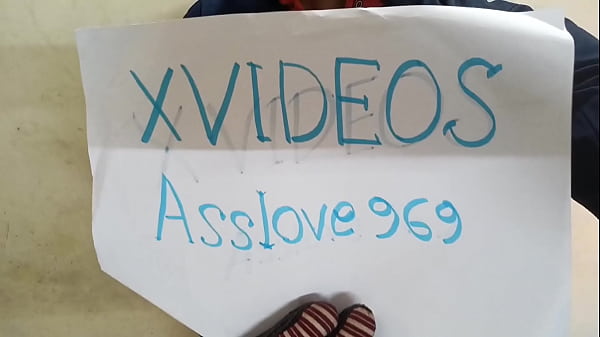 XVIDEOS
Asslove969